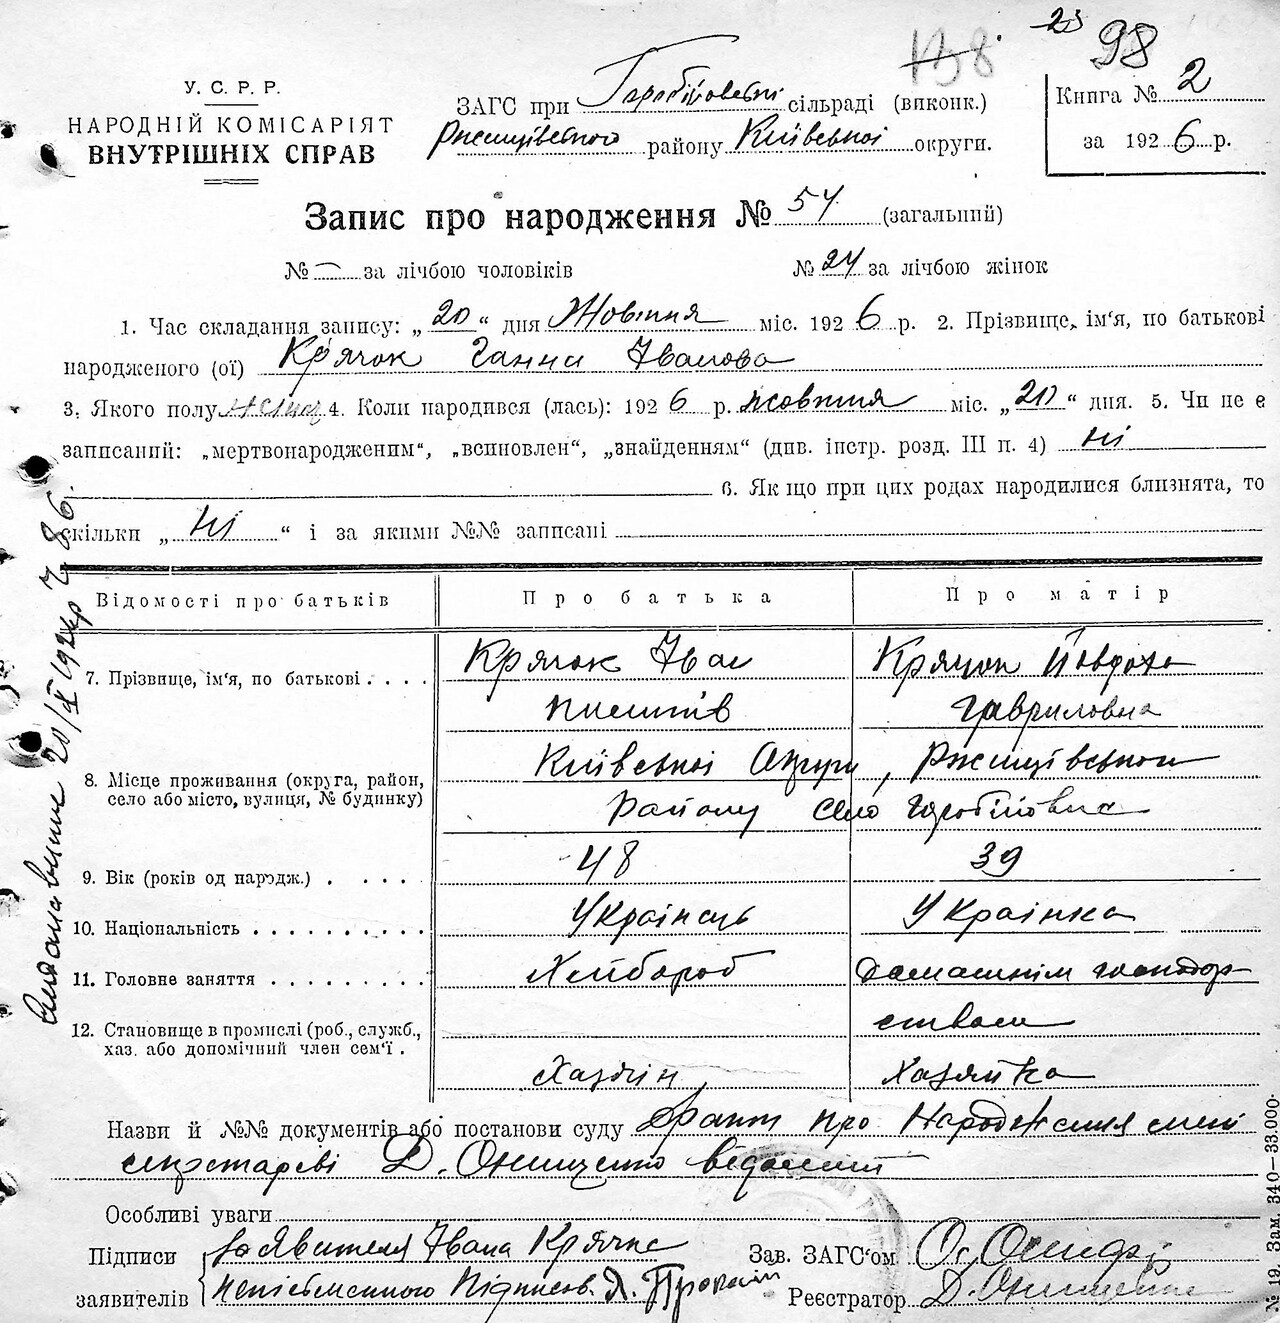 23 98
138
У. С. Р. Р.
НАРОДНІЙ КОМІСАРІЯТ
ВНУТРІШНІХ СПРАВ
ЗАГС при Горобіївській сільраді (виконк.)
Ржищівського району Київської округи.
Книга № 2
за 1926 р.
Запис про народження № 54 (загальний)
№ — за лічбою чоловіків № 24 за лічбою жінок
1. Час складання запису: „20“ дня Жовтня міс. 1926 р. 2. Прізвище, ім'я, по батькові
народженого (ої) Крячок Ганна Іванова
3. Якого полу жіноч 4. Коли народився (лась): 1926 р. жовтня міс. „20“ дня. 5. Чи не є
записаний: „мертвонародженим“, „всиновлен“, „знайденням“ (див. інстр. розд. III п. 4) ні
6. Якщо при цих родах народилися близнята, то
скільки „ні“ і за якими №№ записані
Відомості про батьків Про батька Про матір
7. Прізвище, ім'я, по батькові . . . . Крячок Іван Крячок Йовдоха
Гавриловна
8. Місце проживання (округа, район, Київської Округи, Ржищівського
село або місто, вулиця, № будинку) Району село Горобіївка
9. Вік (років од народж.) . . . . . 48 39
10. Національність . . . . . . . . . . Українець Українка
11. Головне заняття . . . . . . . . . Хлібороб Домашнім господар-
ством
12. Становище в промислі (роб., служб.,
хаз. або допомічний член сем'ї . Хазяїн, Хазяйка
Назви й №№ документів або постанови суду Факт про Народження мені
секретареві Д. Онищенко відомий
Особливі уваги
Підписи заявителя Івана Крячка Зав. ЗАГС'ом
заявителів неписьменного Підписав Реєстратор Д. Онищенко
№ 19. Зам. 340—33.000.